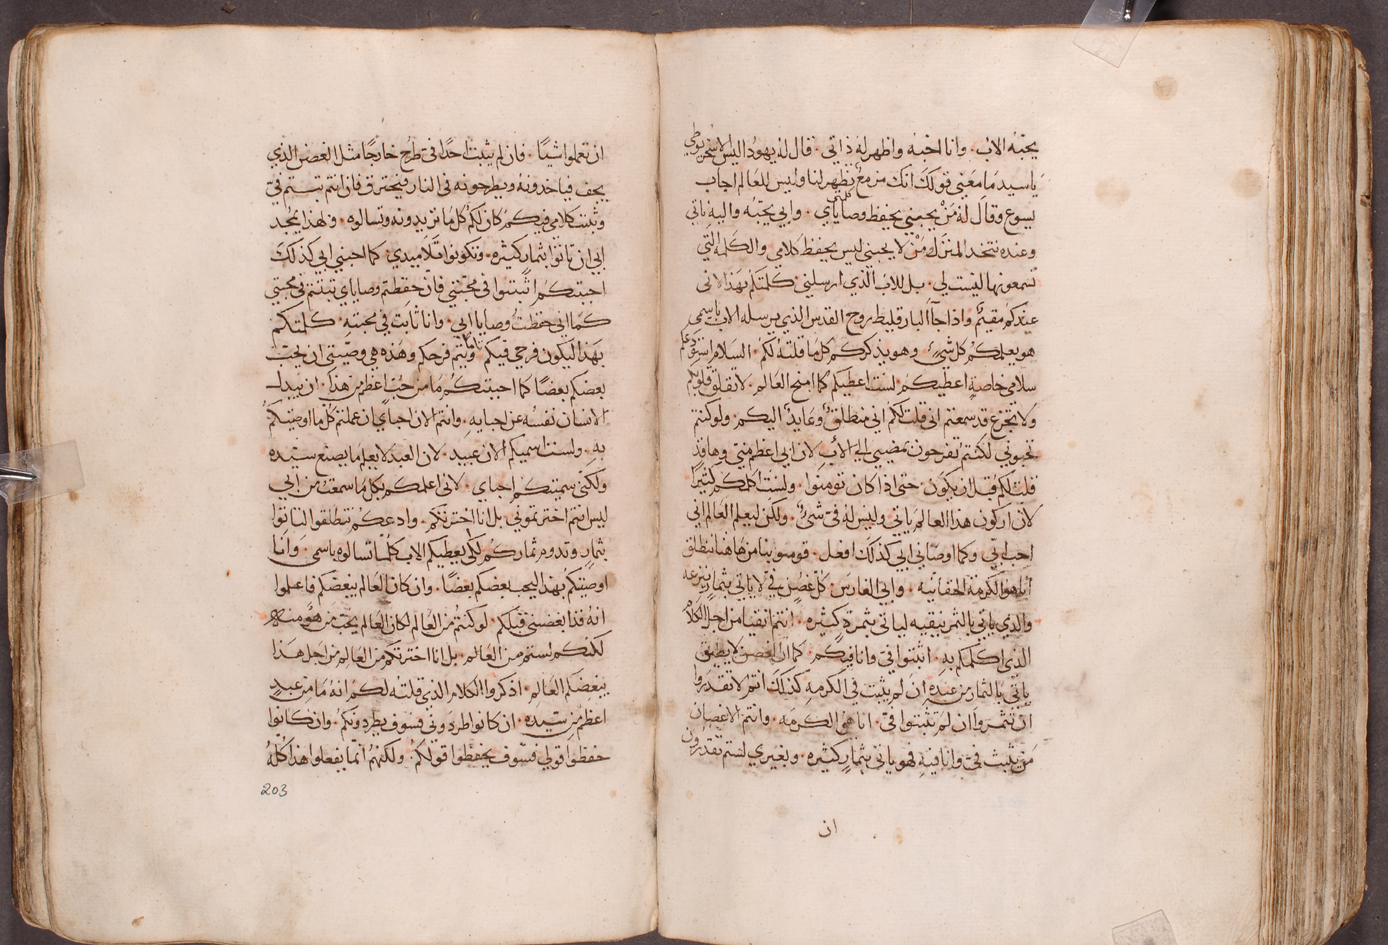 يحبّه الاب . وانا احبّه واظهر له ذاتي . قال له يهودا ليس الاسخريوطي
يا سيد ما معنى قولك انك مزمع تظهر لنا وليس للعالم اجاب
يسوع وقال له مَنْ يحبني يحفظ وصاياي كلمتي . وابي يحبّه واليه ناتي
وعنده نتخذ المنزل مَنْ لا يحبني ليس يحفظ كلامي . والكلمة التي
تسمعونها ليست لي . بل للاب الذي ارسلني . كلمتكم بهذا لاني
عندكم مقيمٌ واذا جآ البارقليط روح القدس الذي يرسله الاب باسمي
هو يعلمكم كل شيء . وهو يذكركم كل ما قلته لكم . السلام استودعكم
سلامي خاصةً اعطيكم . لست اعطيكم كما منح العالم . لا تقلق قلوبكم
ولا تجزع قد سمعتم اني قلت لكم اني منطلقٌ وعايدٌ اليكم . ولو كنتم
تحبوني لكنتم تفرحون بمضيي الى الأب لان ابي اعظم مني وهاقد
قلت لكم قبل ان يكون . حتى اذا كان تومنوا . ولست اكلمكم كثيرًا
لان اركون هذا العالم ياتي وليس له في شيءٌ . ولكن ليعلم العالم اني
احب ابي . وكما اوصاني ابي كذلك افعل . قوموا بنا من هاهنا ننطلق
أنا هو الكرمة الحقانيه . وابي الغارس . كل غصنٍ فيّ لا ياتي بثمار ينزعه
والذي ياتي بالثمر ينقيه لياتي بثمرة كثيره . انتم انقيا من اجل الكلام
الذي اكلمكم به . اثبتوا فيّ وانا فيكم . كما ان الغصن لا يطيق
ياتي بالثمار من عنده ان لم يثبت في الكرمه كذلك انتم لا تقدروا
ان تثمروا ان لم تثبتوا فيّ . انا هي الكرمه . وانتم الاغصان
مَن يثبت فيّ وانا فيه فهو ياتي بثمارٍ كثيره . وبغيري لستم تقدرون
ان
ان تعملوا شيًا . فان لم يثبت احدًا فيّ طرح خارجًا مثل الغصن الذي
يجف فياخذونه ويطرحونه في النار فيحترق فان انتم ثبتم فيّ
وثبت كلامي فيكم كان لكم كل ما تريدونه وتسالوه . ولهذا يمجد
ابي ان تاتوا بثمار كثيره . وتكونوا تلاميدي . كما احبني ابي كذلك
احبتكم اثبتوا في محبّتي فان حفظتم وصاياي ثبتم في محبتي
كما اني حفظتُ وصايا ابي . وانا ثابت في محبته . كلمتكم
بهذا ليكون فرحي فيكم ويتم فرحكم وهذه هي وصيّتي ان يحبّ
بعضكم بعضًا كما احبتكم ما من حُبٍ اعظم من هذا . ان يبدل
الانسان نفسه عن احبايه . وانتم الان احباي ان عملتم كل ما اوصيتكم
به . ولست اسميكم الان عبيد . لان العبد لا يعلم ما يصنع سيّده
ولكني سميتكم احباي . لاني اعلمكم بكل ما سمعت من ابي
ليس انتم اخترتموني بل انا اخترتكم . وادعكم تنطلقوا لتاتوا
بثمارٍ وتدوم ثماركم لكي يعطيكم الاب كلما تسالوه باسمي . وانا
اوصيتكم بهذا ليحب بعضكم بعضًا . وان كان العالم يبغضكم فاعلموا
انه قد ابغضني قبلكم . لو كنتم من العالم لكان العالم يحب مَن هو منه
لكنكم لستم من العالم . بل انا اخترتكم من العالم من اجل هذا
يبغضكم العالم . اذكروا الكلام الذي قلته لكم انه ما من عبدٍ
اعظم من سيّده . ان كانوا طردوني فسوف يطردونكم . وان كانوا
حفظوا قولي فسوف يحفظوا قولكم . ولكنهم انما يفعلوا هذا كلّه
203